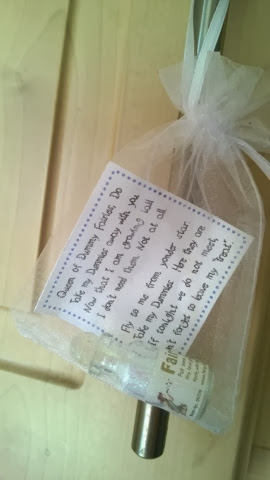 Queen of Dummy Fairies, Do
take my Dummies away with you
Now that I am growing tall
I don't need them Not at all
Fly to me from yonder star
Take my Dummies Here they are
if tonight we do not meet,
Don't forget to leave my "treat".
Fair